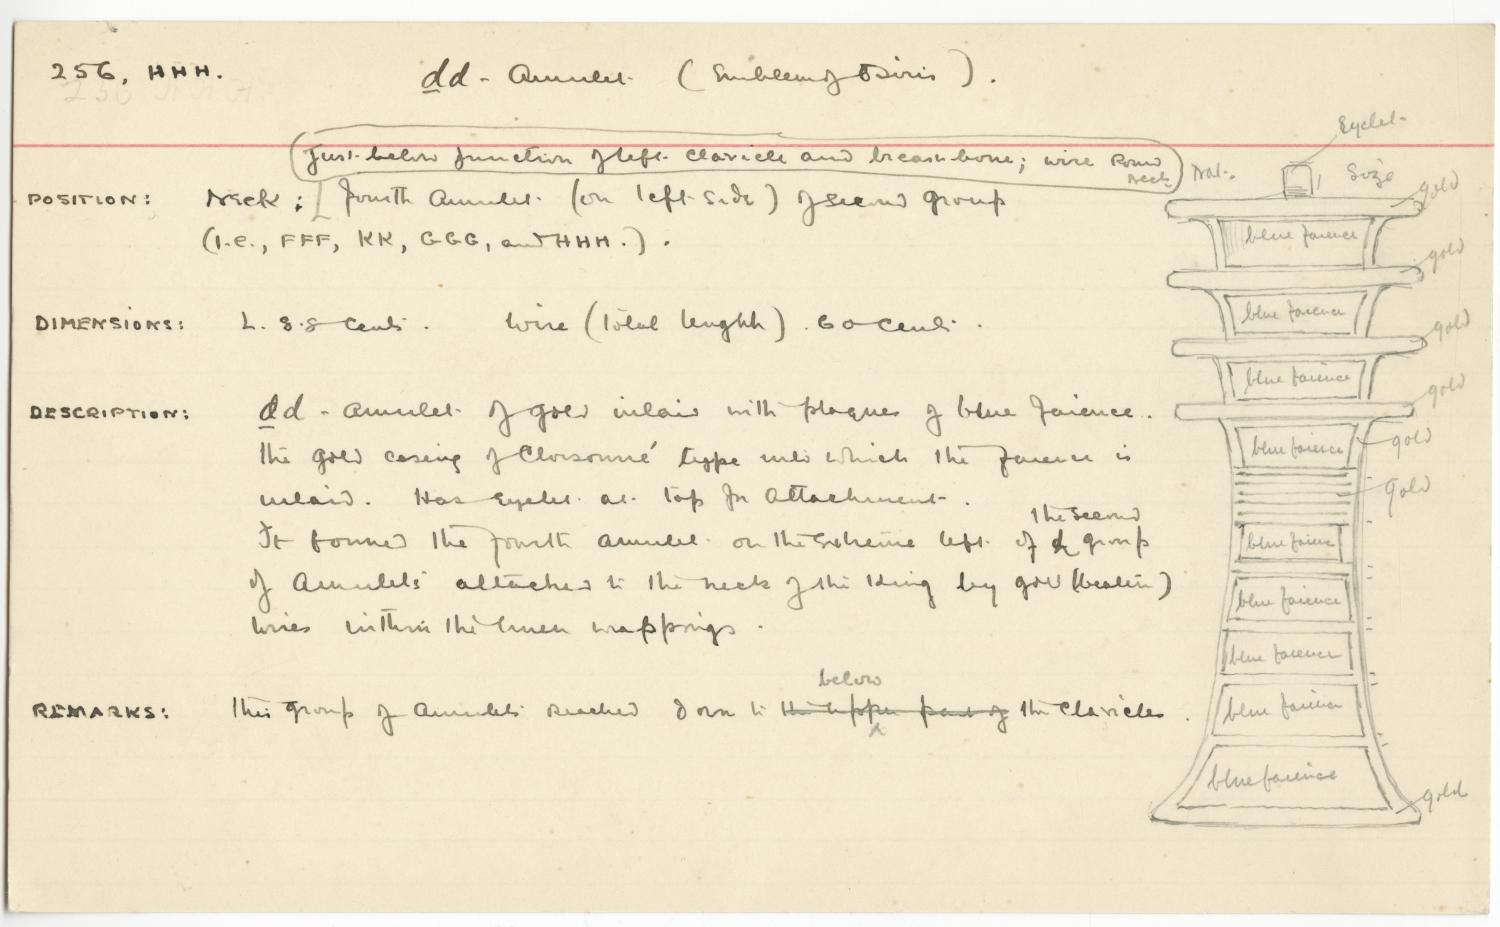 256, HHH.
dd - Amulet (Emblem of Osiris).
Just below junction of left clavicle and breast-bone; wire round
neck
POSITION: Neck; [ fourth Amulet (on left side) of second group
(i.e., FFF, KK, GGG, and HHH.).
DIMENSIONS: L. 8.8 cents. Wire (total lenghh) 60 cents.
DESCRIPTION: dd - amulet of gold inlaid with plaques of blue faience.
The gold casing of Cloisonné type into which the faience is
inlaid. Has eyelet at top for attachment.
the second
It formed the fourth amulet on the extreme left of group
of Amulets attached to the neck of the King by gold (beaten)
wires within the linen wrappings.
below
REMARKS: This group of Amulets reached down to the upper part of the clavicles.
Eyelet
Nat. Size
gold
blue faience
gold
blue faience
gold
blue faience
gold
blue faience
gold
gold
blue faience
blue faience
blue faience
blue faience
blue faience
gold